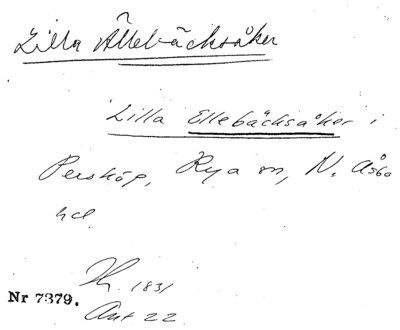 Lilla Ällebäcksåker
Lilla Ellebäcksåker i
Perstorp, Rya sn, N. Åsbo
hd
1831
Nr 7379.
Akt 22